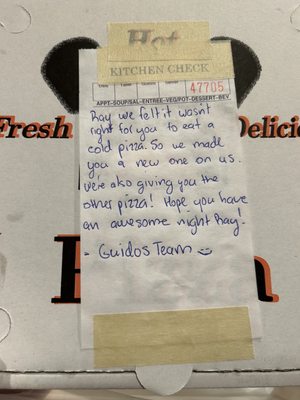 Hot
KITCHEN CHECK
47705
APPT-SOUP/SAL-ENTREE-VEG/POT-DESSERT-BEV
Fresh
Delicio
Ray we felt it wasn't
right for you to eat a
cold pizza. So we made
you a new one on us.
We're also giving you the
other pizza! Hope you have
an awesome night Ray!
- Guidos Team